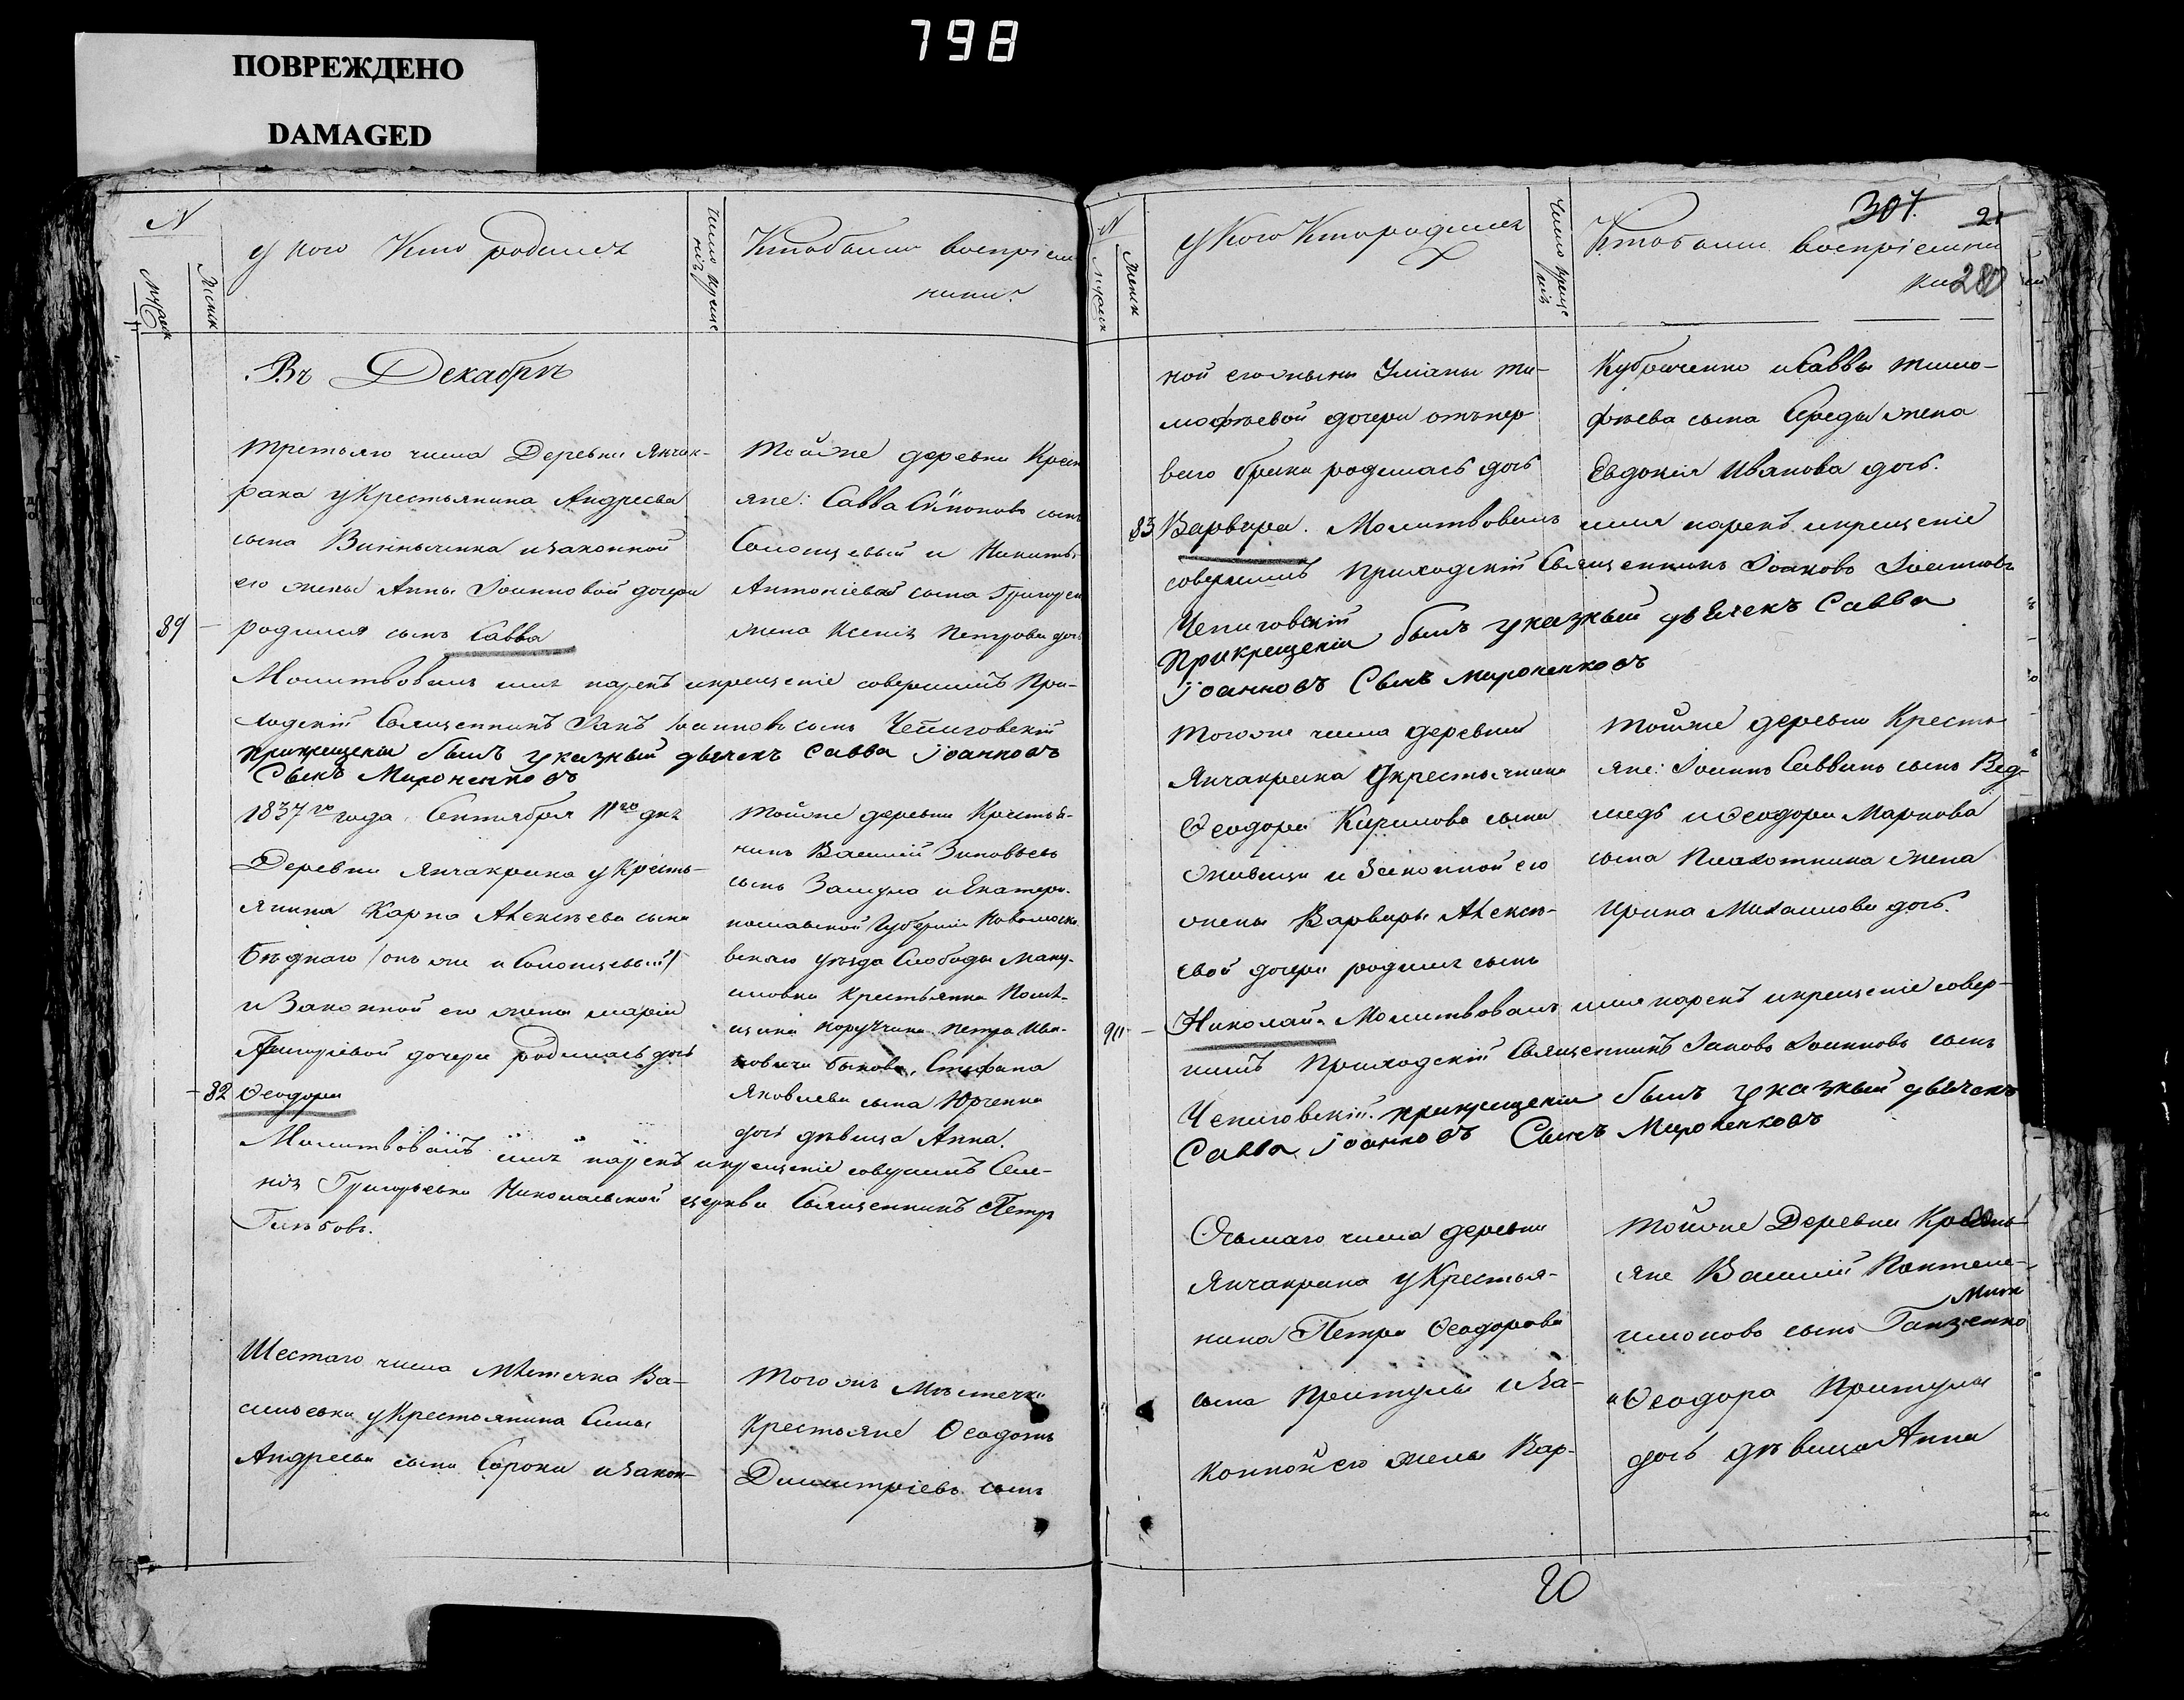 798
ПОВРЕЖДЕНО
DAMAGED
N
мужеск
женск
у кого Кто родился
Число креще
нія
Кто были воспріем
ники?
Въ Декабрѣ
третьяго числа Деревни Янчак-
рака у Крестьянина Андреева
сына и законной
его жены Анны Іоанновой дочери
89 родился сынъ Савва
Тойже деревни Крест
яне: Савва сынъ
и Никиты
Антоніева сына
жена Ксенія Петрова дочь
Молитвовалъ имя нарекъ и крещеніе совершилъ При-
ходскій Священникъ Іоанновъ сынъ Чепиговскій
при крещеніи былъ указный дьячекъ Савва Іоанновъ
Сынъ Мироненковъ
1837го года Сентября 11го дня
Деревни Янчакрака у Кресть-
янина Карпа Алексѣева сына
Бѣднаго (онъ же и
и Законной его жены Маріи
Григоріевой дочери родилась дочь
82 Ѳеодора
Тойже деревни Крестья-
нинъ Василій Зиновьевъ
сынъ и Екатери-
нославской Губерніи Новомоско
вскаго уѣзда Слободы Ману-
иловки Крестьянки Помѣ-
щика поручика Петра Ива-
новича Быкова, Стефана
Яковлева сына Юрченка
дочь дѣвица Анна.
Молитвовалъ имя нарекъ и крещеніе совершилъ Селе-
нія Григорьевки Николаевской церкви Священникъ Петр
Глѣбовъ.
Шестаго числа Мѣстечка Ва-
сильевки у Крестьянина Силы
Андреева сына Сороки и закон-
Того жъ Мѣстечка
Крестьяне Ѳеодотъ
Димитріевъ сынъ
N
мужеск
женск
у Кого Кто родился
Число креще
нія
Кто были воспріемни
ки
307.
21
280
ной его жены Уліаны Ти-
мофѣевой дочери отъ пер
ваго брака родилась дочь
83 Варвара. Молитвовалъ имя нарекъ и крещеніе
Кубраченко и Саввы Тимо-
фѣева сына Середы жена
Евдокія Иванова дочь.
совершилъ Приходскій Священникъ Іаковъ Іоанновъ
Чепиговскій
При крещеніи былъ указный дьячекъ Савва
Іоанновъ Сынъ Мироненковъ
Того же числа деревни
Янчакрака У крестьянина
Ѳеодора Кирилова сына
и Законной его
жены Варвары Алексѣ-
евой дочери родился сынъ
Тойже деревни Кресть
яне: Іоаннъ Саввинъ сынъ Вед-
медь и Ѳеодора Маркова
сына Плахотника жена
Ирина Михаилова дочь.
90 Николай. Молитвовалъ имя нарекъ и крещеніе совер-
шилъ Приходскій Священникъ Іаковъ Іоанновъ сынъ
Чепиговскій. при крещеніи былъ указный дьячекъ
Савва Іоанновъ Сынъ Мироненковъ
Осьмаго числа деревни
Янчакрака у Крестья-
нина Петра Ѳеодорова
сына Притулы и За-
конной его жены Вар-
Тойже Деревни Кресть
яне Василій Пантеле-
имоновъ сынъ
и Ѳеодора Притулы
дочь дѣвица Анна
20